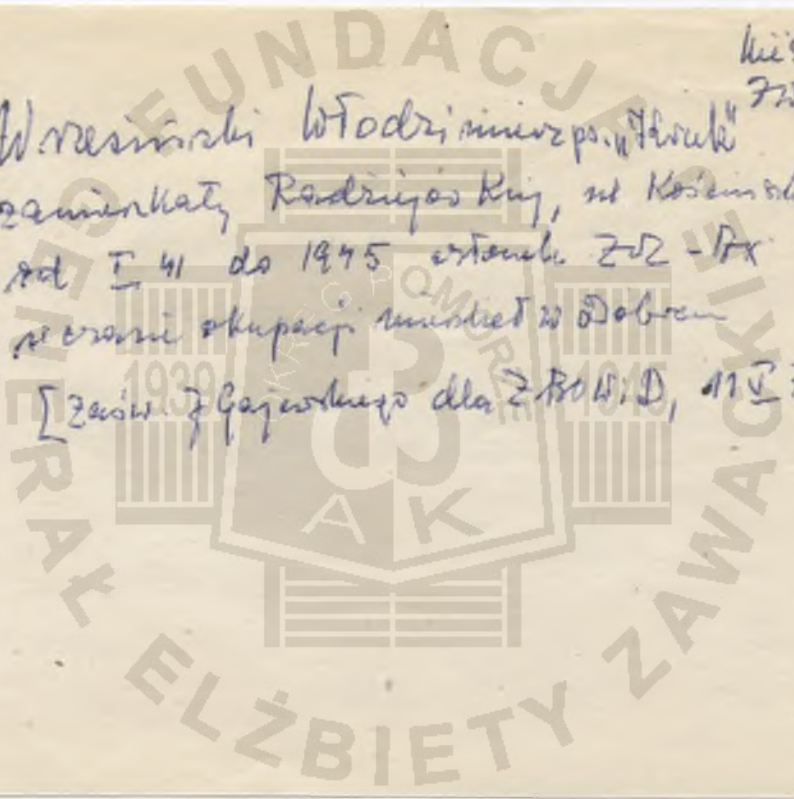 Wrzesiński Włodzimierz ps. „Kruk"
zamieszkały Radziejów Kuj, ul Kościuszk
od I 41 do 1945 członek ZWZ - AK
w czasie okupacji mieszkał w Dobrem
[Zaśw. J Gajewskiego dla ZBOWiD, 11 V
FUNDACJA GENERAŁ ELŻBIETY ZAWACKIEJ
OKRĘG POMORZE
1939 1945
AK